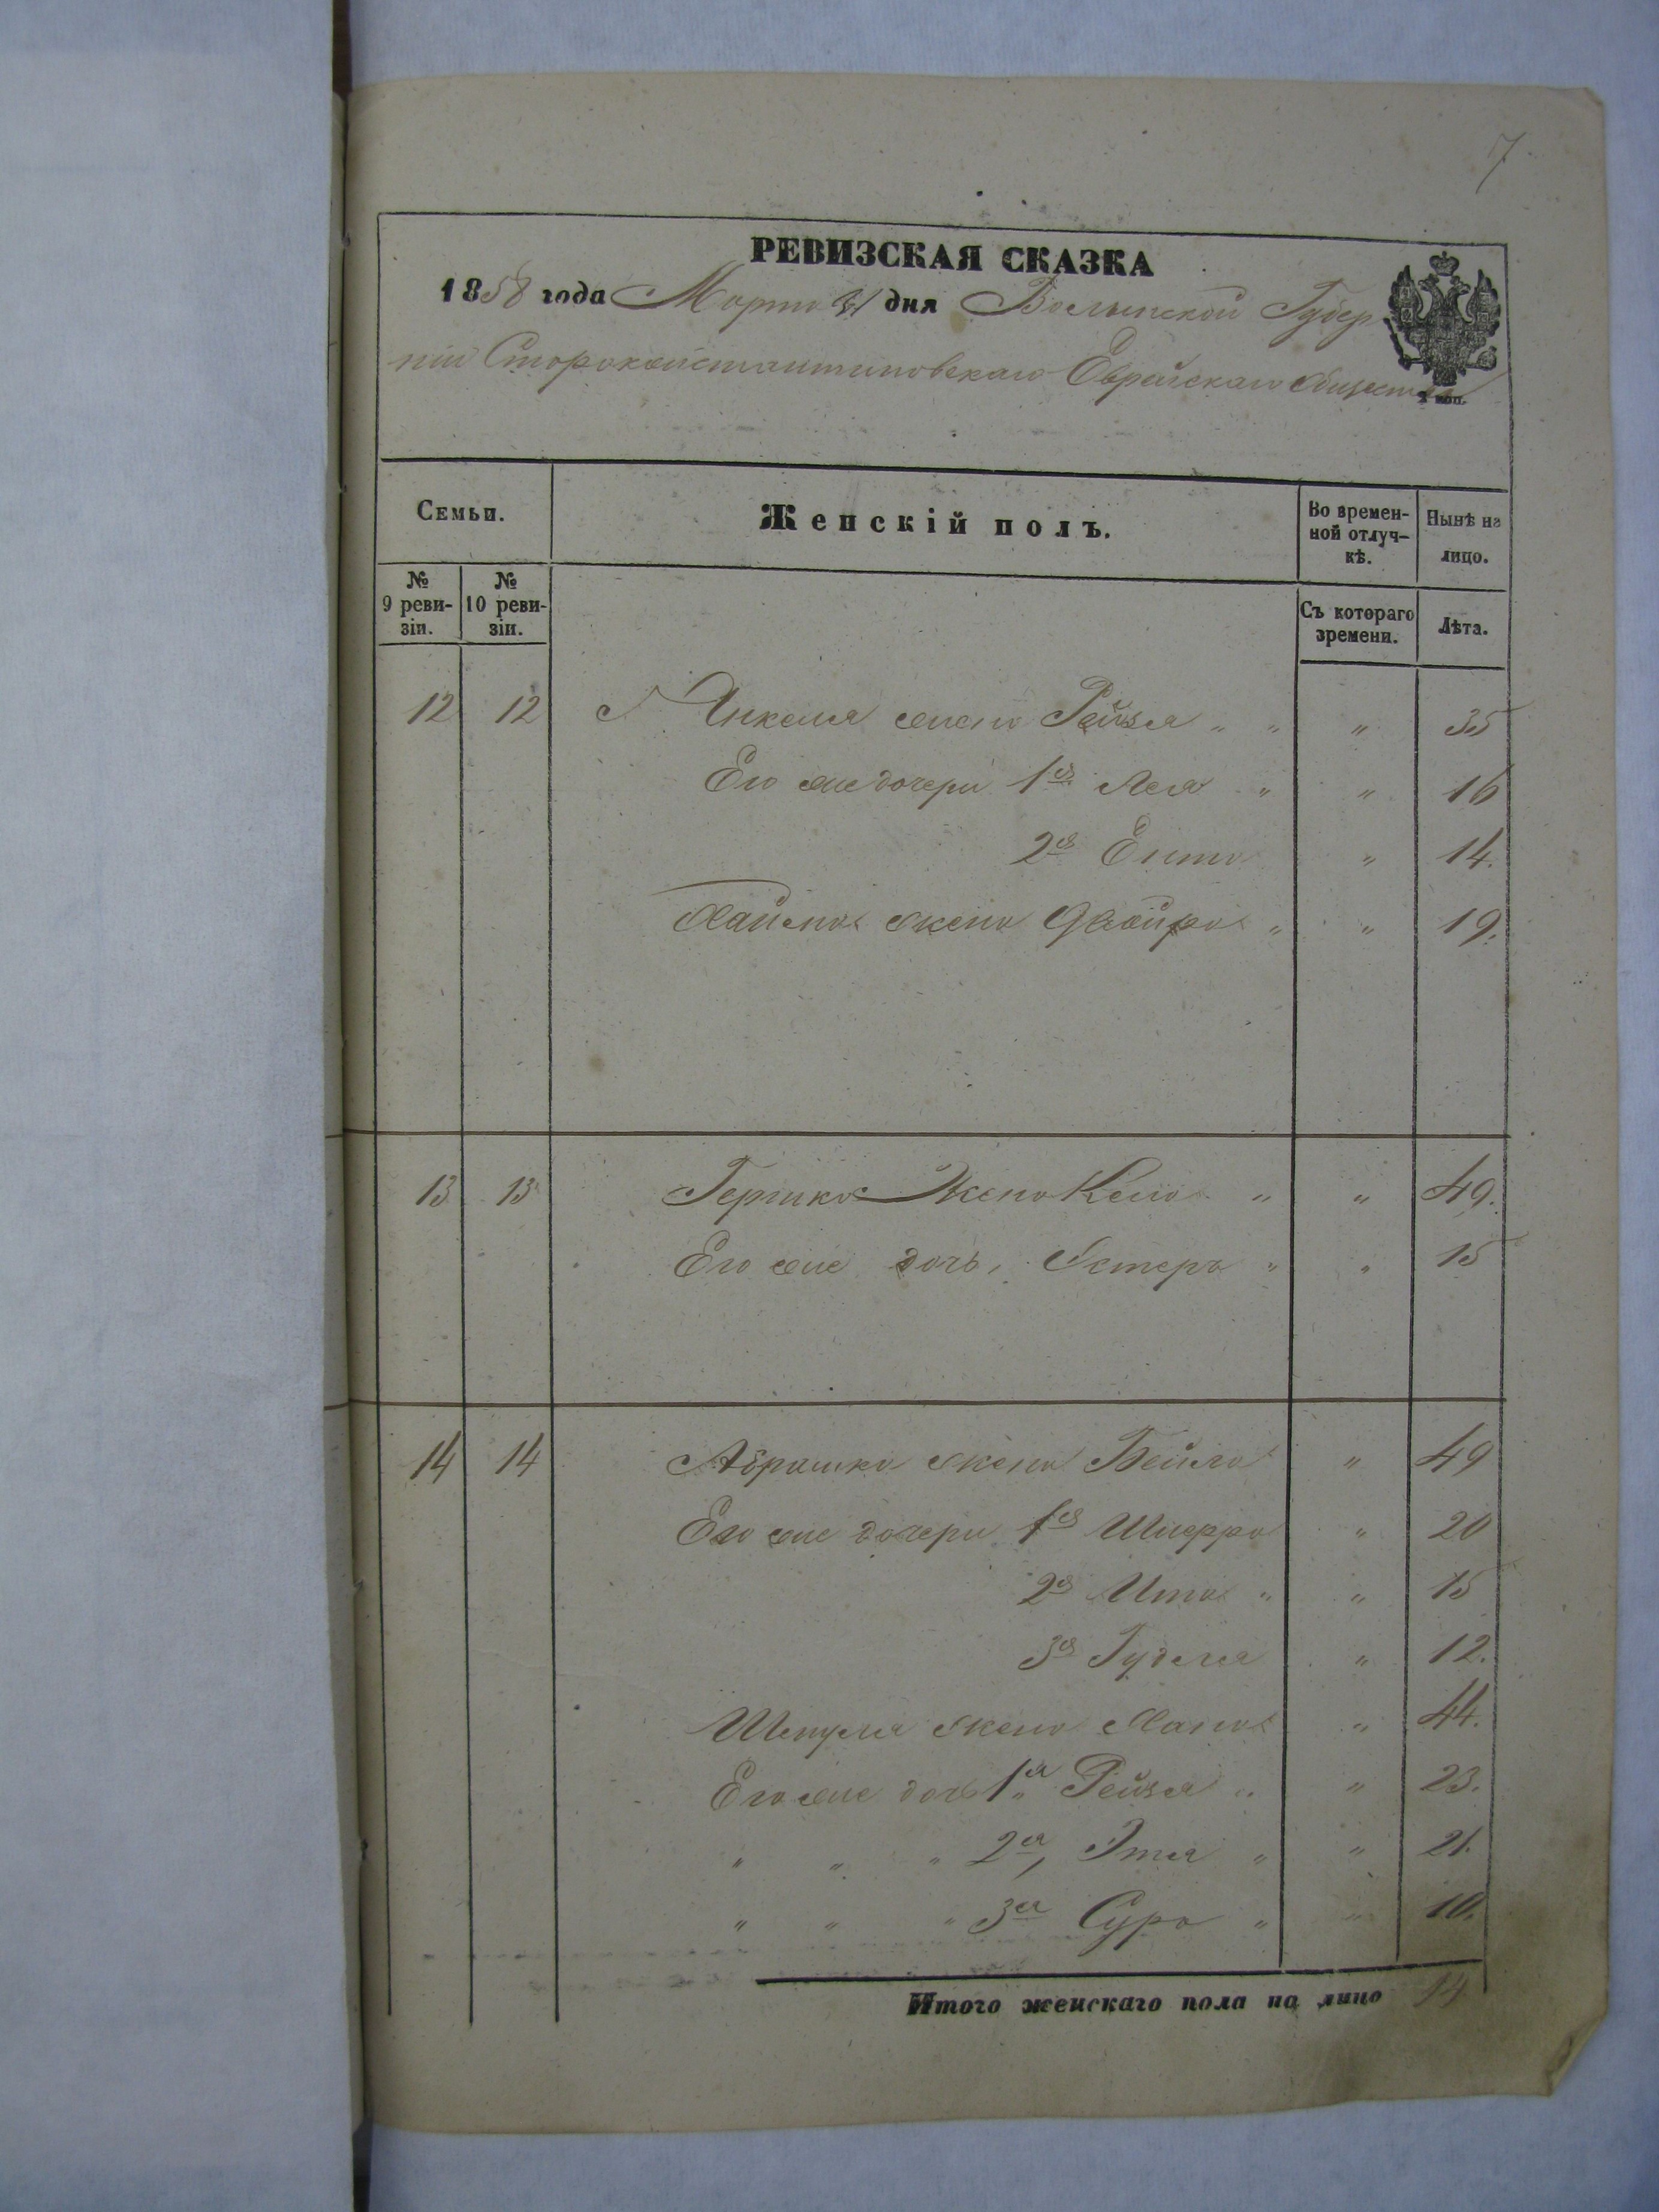 7
РЕВИЗСКАЯ СКАЗКА
1858 года Марта 31 дня Волынской Губер
ніи Староконстантиновскаго Еврейскаго Общества
Семьи. Женскій полъ. Во времен- Нынѣ на
ной отлуч- лицо.
кѣ.
№ №
9 реви- 10 реви- Съ котораго Лѣта.
зіи. зіи. времени.
12 12 Янкеля жена Рейзя " " " 35
Его же дочери 1я Лея " " 16
2я Ента " 14.
Хаима жена Двойра " " 19.
13 13 Гершка Жена Кейла " " 49.
Его же дочь, Эстера " " 15
14 14 Абрашка жена Бейла " 49
Его же дочери 1я Шифра " 20
2я Ита " " 15
3я Гудля " 12.
Шмуля жена Хана " 44.
Его же дочь 1я Рейзя " " 23.
" " " 2я, Этля " " 21.
" " " 3я Сура " " 10.
Итого женскаго пола на лицо 14